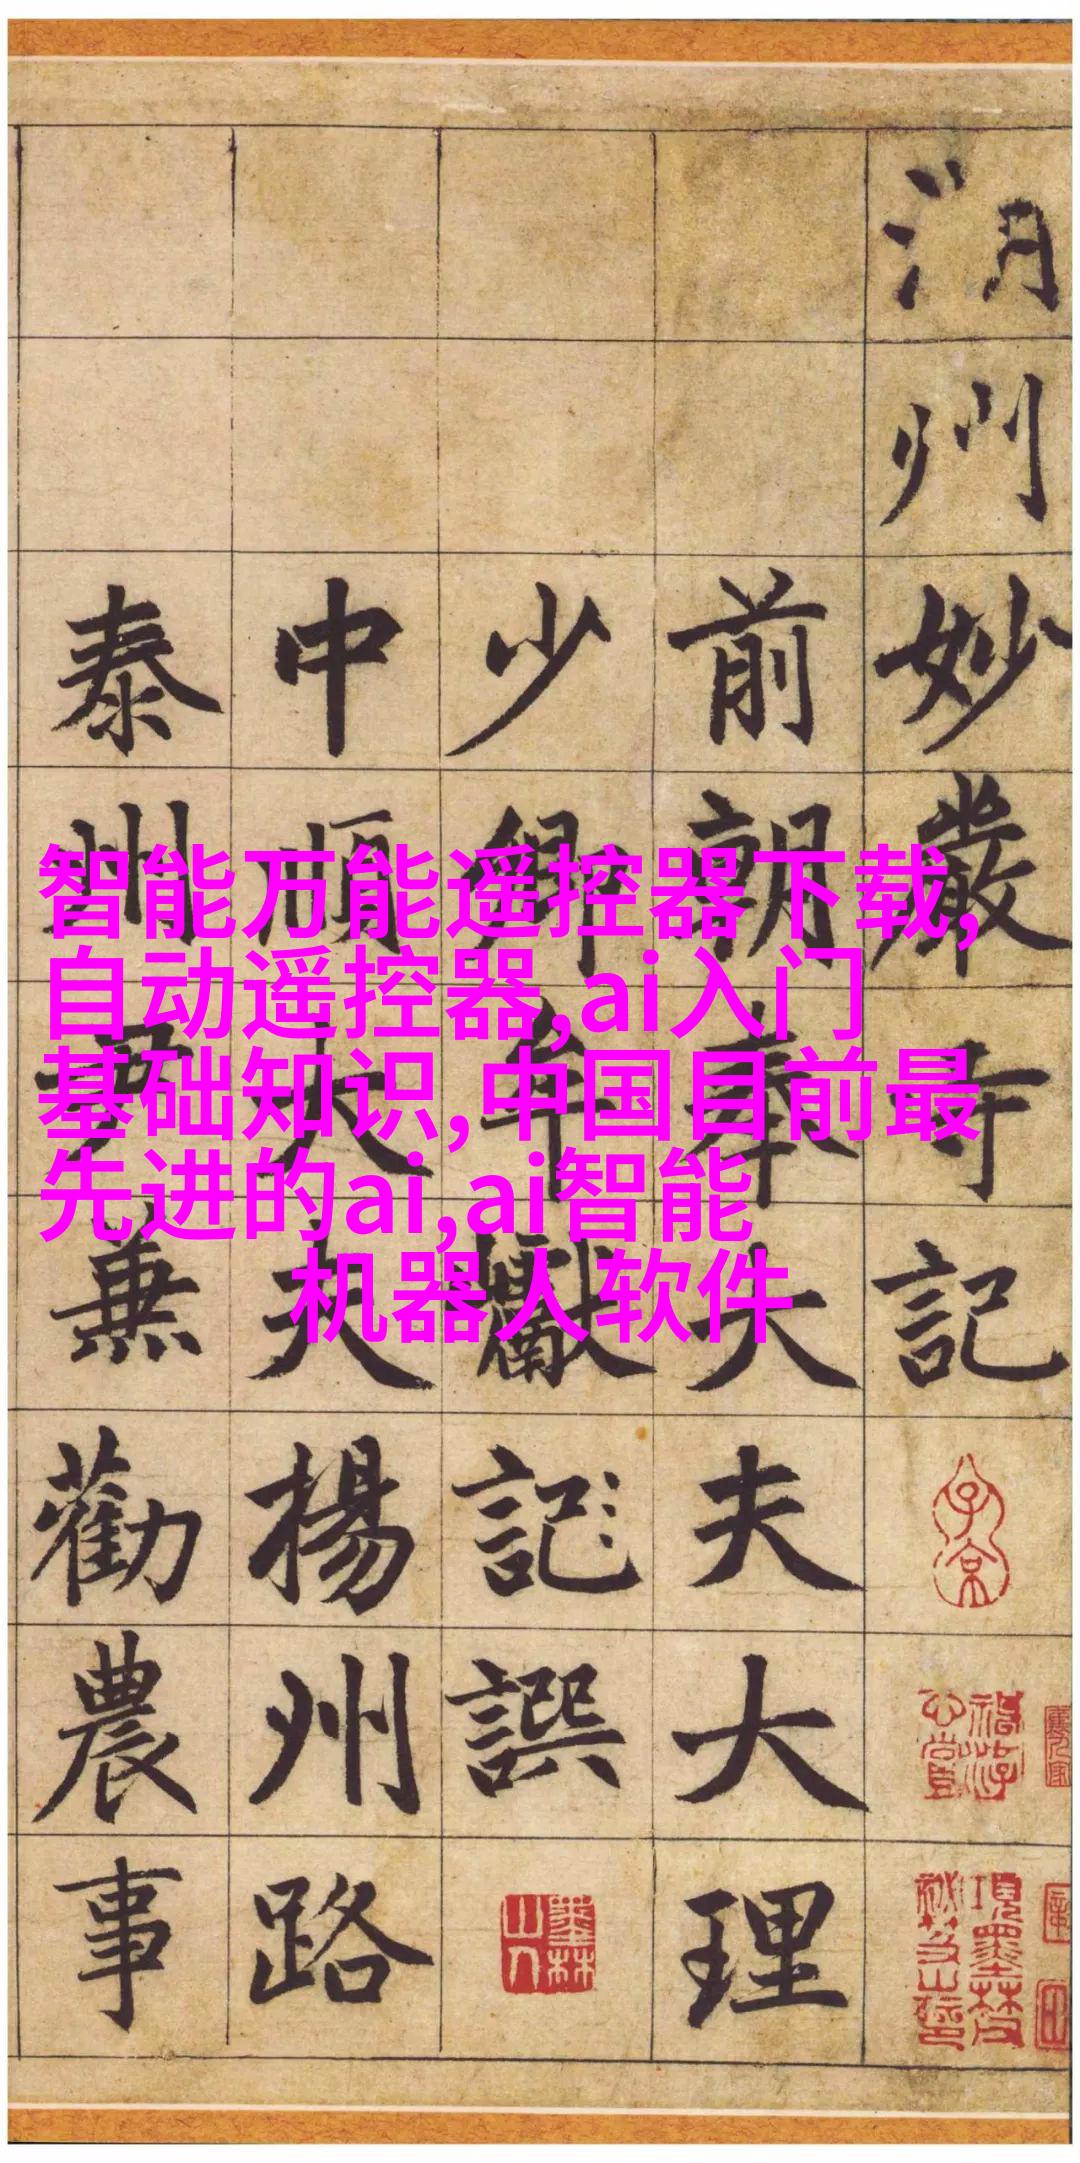 智能万能遥控器下载,
自动遥控器,ai入门
基础知识,中国目前最
先进的ai,ai智能
机器人软件
湖州妙嚴寺記
前朝奉大夫大理
少卿牟巘記譔
中順大夫揚州路
泰州尹兼勸農事